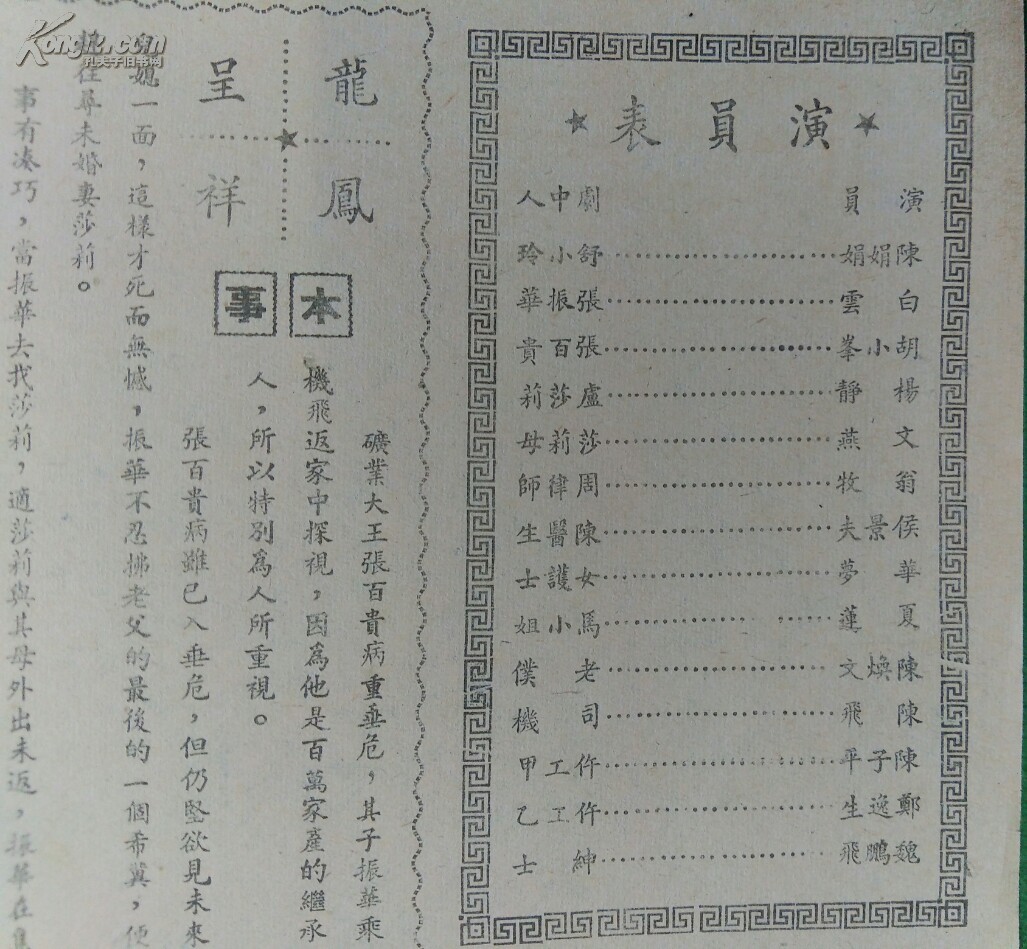 ★演員表★
演員 劇中人
陳娟娟……………舒小玲
白雲……………張振華
胡小峯……………張百貴
楊靜……………盧莎莉
文燕……………莎莉母
翁牧……………周律師
侯景夫……………陳醫生
華夢……………女護士
夏蓮……………馬小姐
陳煥文……………老僕
陳飛……………司機
陳子平……………仵工甲
鄭逸生……………仵工乙
魏鵬飛……………紳士
龍鳳
呈祥
本事
礦業大王張百貴病重垂危，其子振華乘
機飛返家中探視，因為他是百萬家產的繼承
人，所以特別為人所重視。
張百貴病雖已入垂危，但仍堅欲見未來
媳一面，這樣才死而無憾，振華不忍拂老父的最後的一個希冀，便
往尋未婚妻莎莉。
事有湊巧，當振華去找莎莉，適莎莉與其母外出未返，振華在
Kongfz.com
孔夫子旧书网